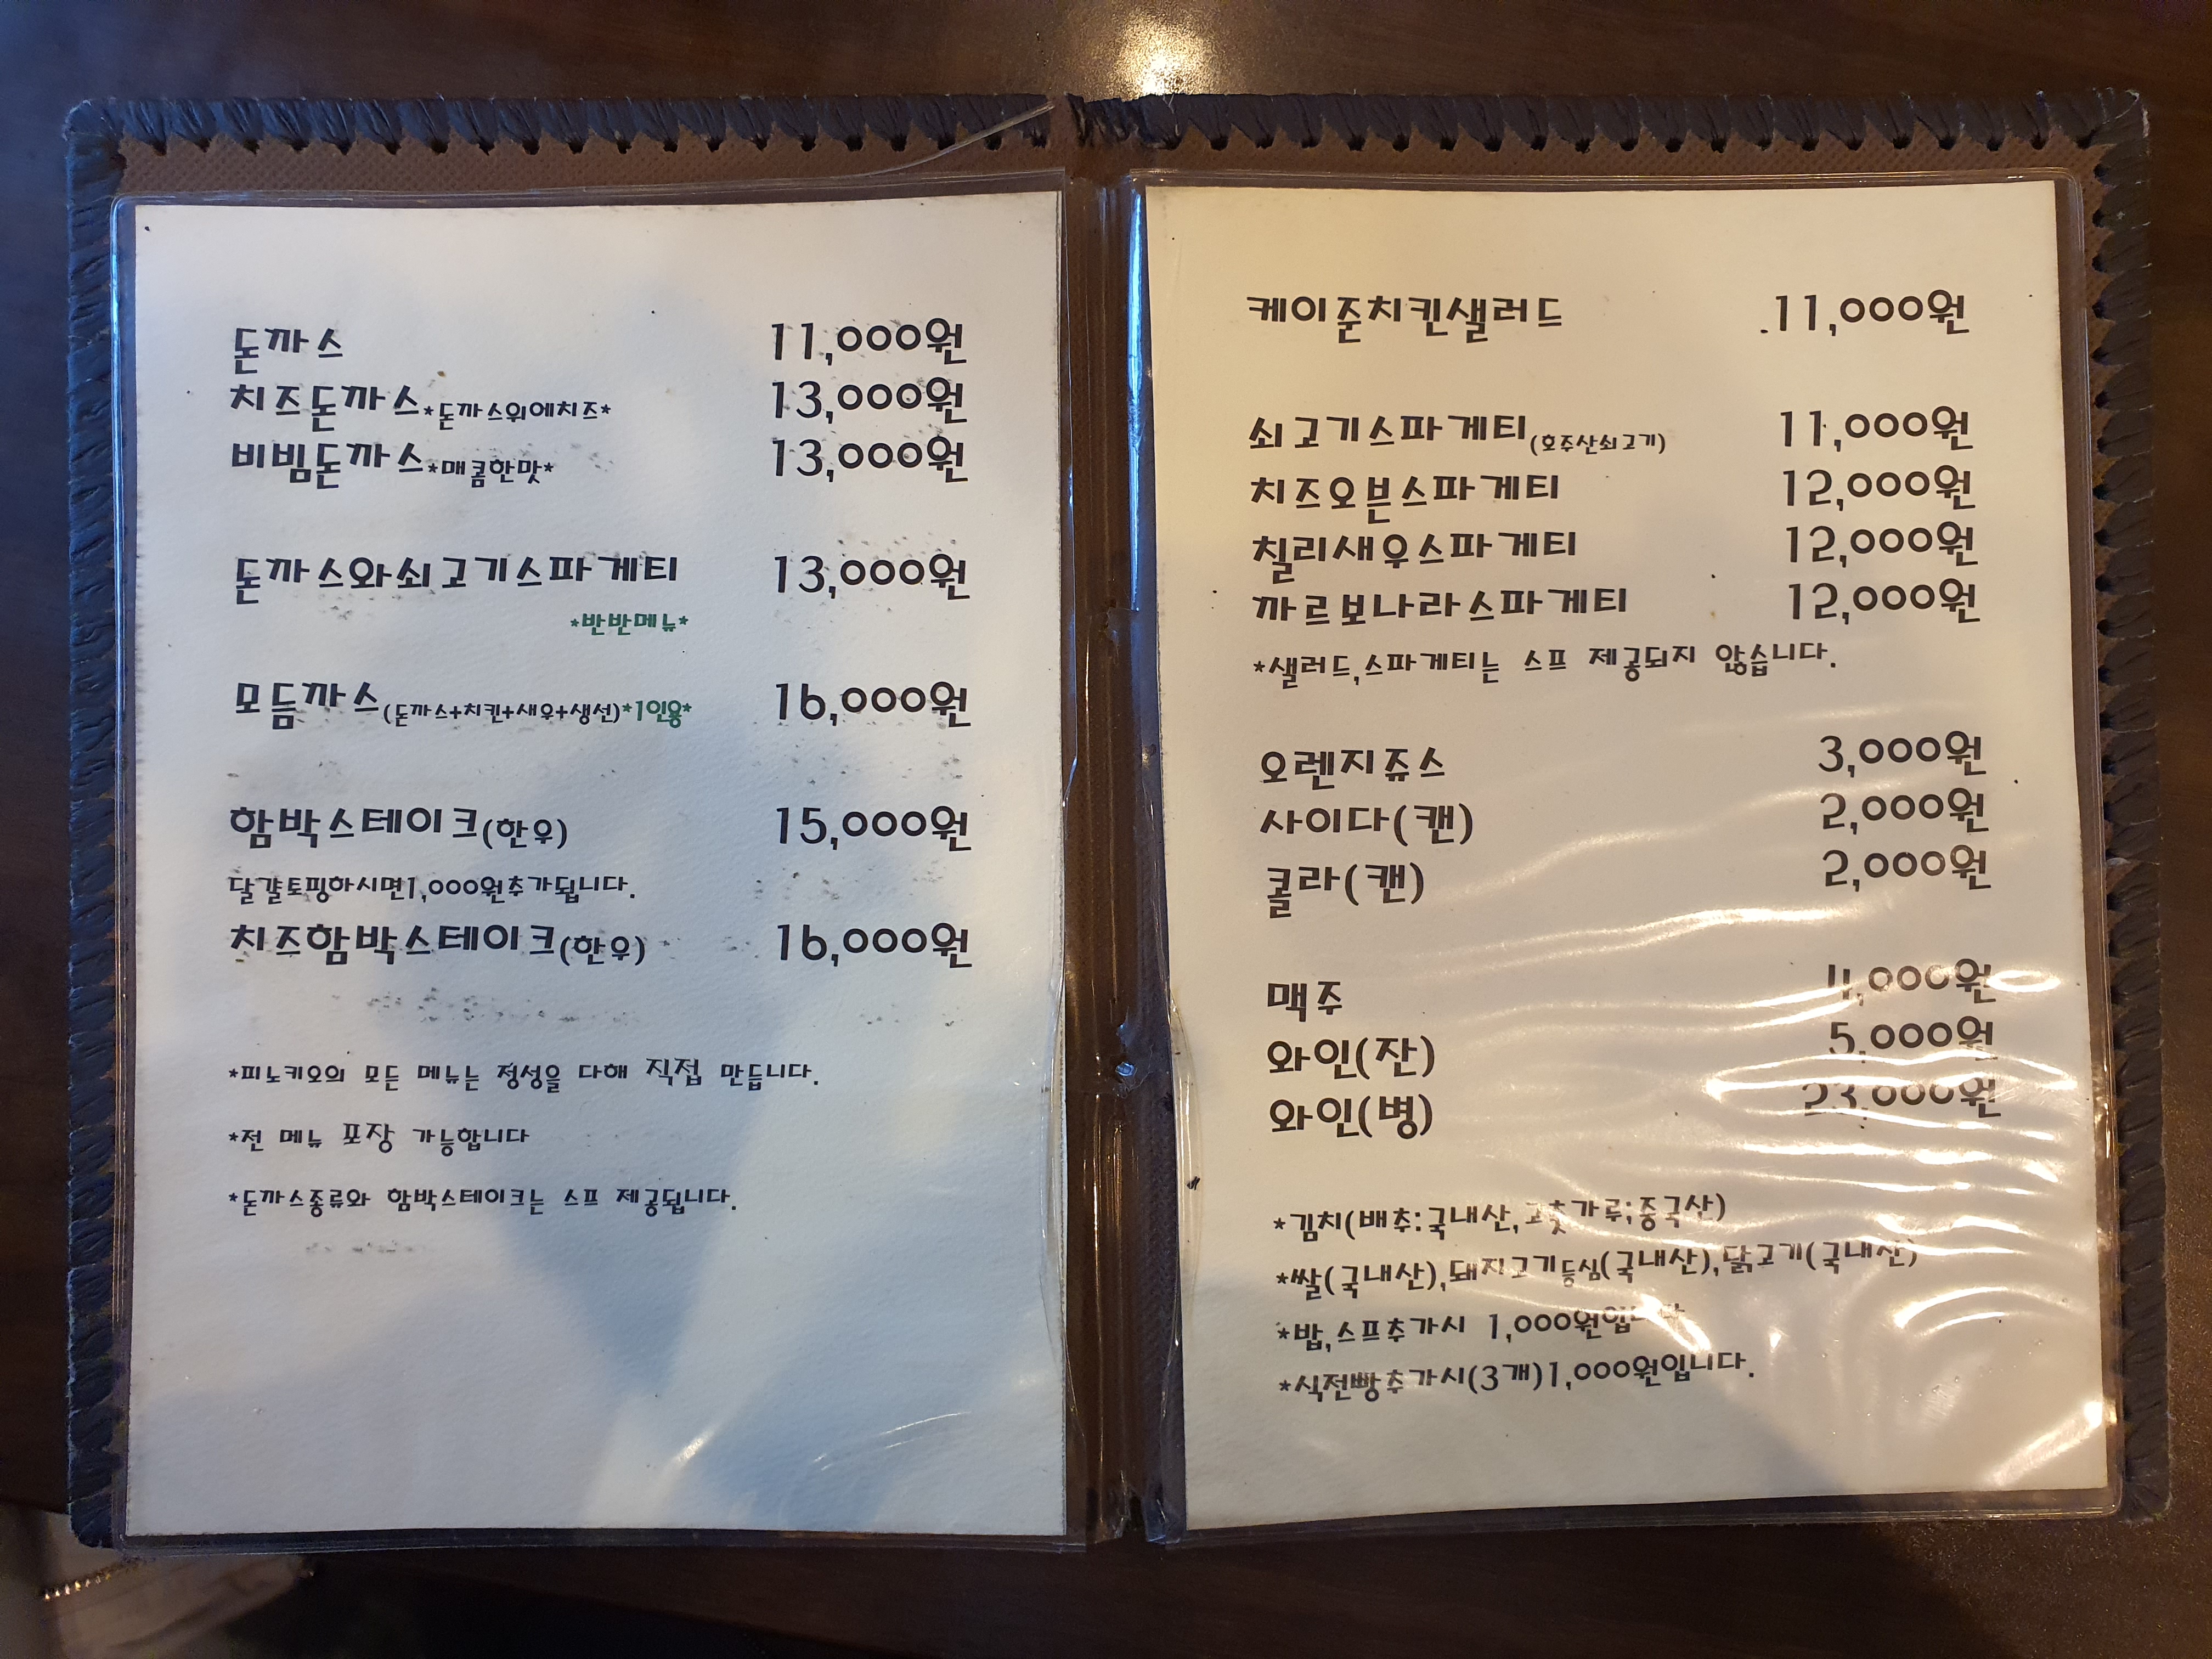 돈까스 11,000원
치즈돈까스*돈까스위에치즈* 13,000원
비빔돈까스*매콤한맛* 13,000원
돈까스와쇠고기스파게티 13,000원
*반반메뉴*
모듬까스(돈까스+치킨+새우+생선)*1인용* 16,000원
함박스테이크(한우) 15,000원
달걀토핑하시면1,000원추가됩니다.
치즈함박스테이크(한우) 16,000원
*피노키오의 모든 메뉴는 정성을 다해 직접 만듭니다.
*전 메뉴 포장 가능합니다
*돈까스종류와 함박스테이크는 스프 제공됩니다.
케이준치킨샐러드 11,000원
쇠고기스파게티(호주산쇠고기) 11,000원
치즈오븐스파게티 12,000원
칠리새우스파게티 12,000원
까르보나라스파게티 12,000원
*샐러드,스파게티는 스프 제공되지 않습니다.
오렌지쥬스 3,000원
사이다(캔) 2,000원
콜라(캔) 2,000원
맥주 4,000원
와인(잔) 5,000원
와인(병) 23,000원
*김치(배추:국내산,고춧가루;중국산)
*쌀(국내산),돼지고기등심(국내산),닭고기(국내산)
*밥,스프추가시 1,000원입니다
*식전빵추가시(3개)1,000원입니다.